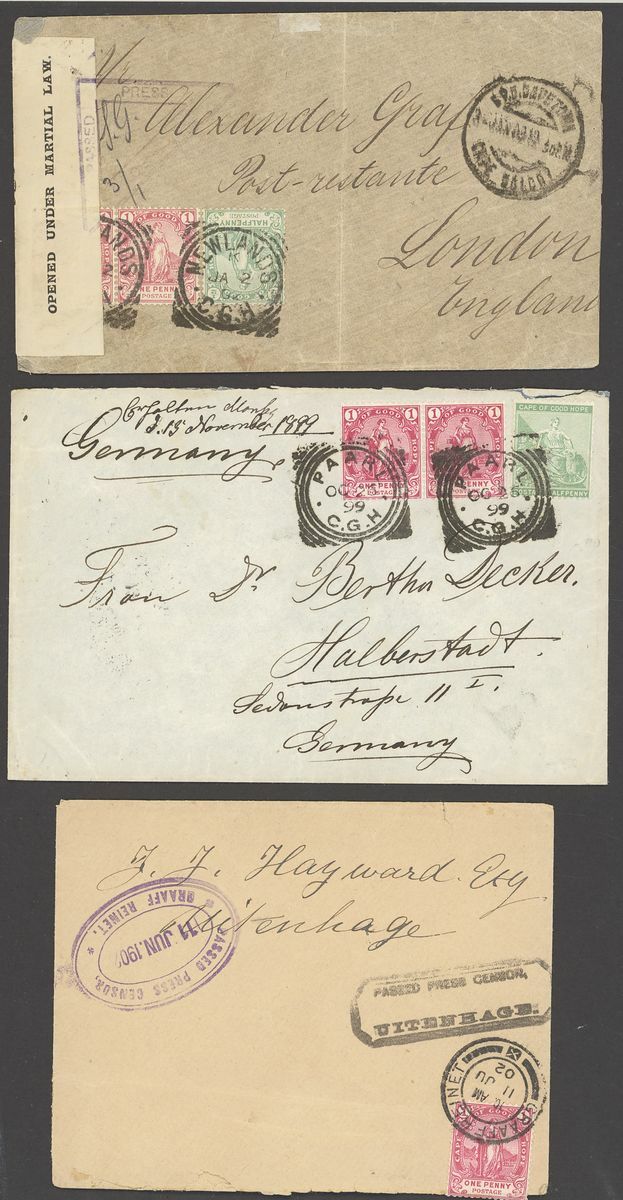 OPENED UNDER MARTIAL LAW.
PASSED
PRESS
Alexander Graf
Post-restante
London
England
3/1
G.P.O. CAPETOWN
JAN
CAPE COLONY
1 OF GOOD 1
ONE PENNY
POSTAGE
HALFPENNY
POSTAGE
LANDS
NEWLANDS
JA 2
C.G.H.
Erhalten
d. 15 November 1899
Germany.
1 OF GOOD 1
ONE PENNY
POSTAGE
1 OF GOOD 1
PENNY
CAPE OF GOOD HOPE
HALFPENNY
PAARL
OC 25
99
C.G.H.
PAARL
OC 25
99
C.G.H.
Frau Dr Bertha Decker.
Halberstadt.
Sedanstraße 11 I.
Germany
F. F. Hayward Esq
Uitenhage
PASSED PRESS CENSOR,
11 JUN.1902
* GRAAFF REINET. *
PASSED PRESS CENSOR,
UITENHAGE.
GRAAFF REINET
AM
11 JU
02
CAPE OF GOOD HOPE
ONE PENNY
POSTAGE